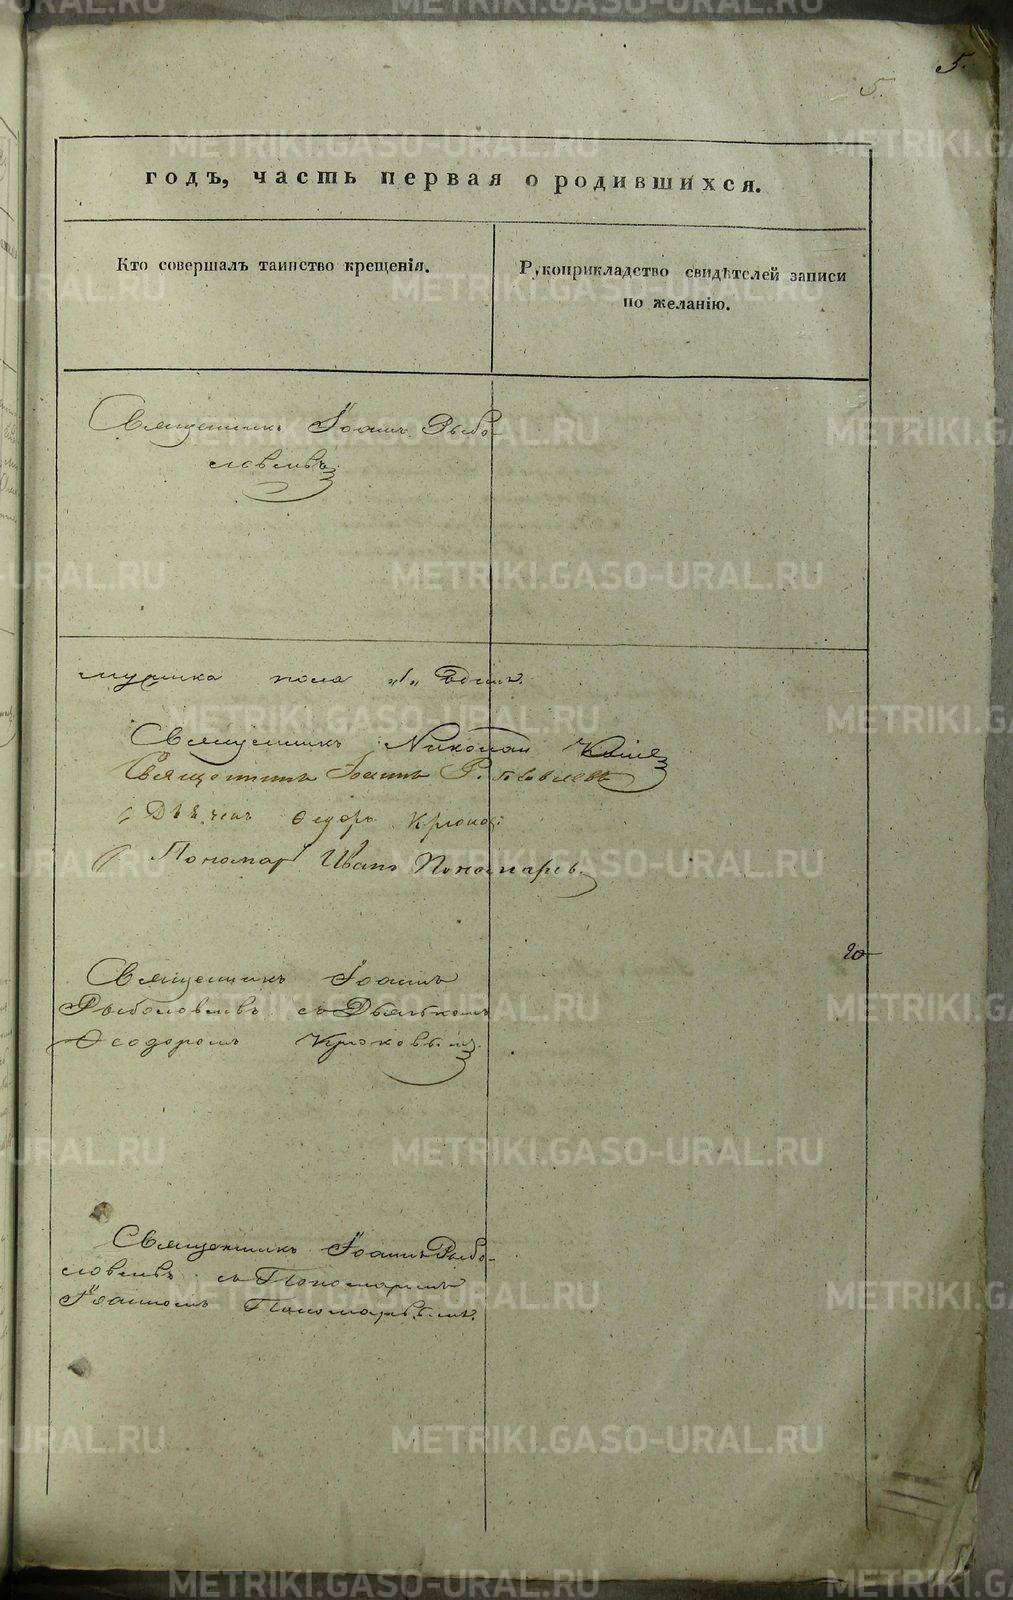 5.
5.
годъ, часть первая о родившихся.
Кто совершалъ таинство крещенія.
Рукоприкладство свидѣтелей записи
по желанію.
Священникъ Іоаннъ Рыбо-
ловлевъ
пола „1„
Священникъ Николай
Священникъ Іоаннъ Рыболовлевъ
Дьячекъ Ѳедоръ Крюковъ
Пономарь Иванъ Пономаревъ
Священникъ Іоаннъ
Рыболовлевъ съ Дьячкомъ
Ѳеодоромъ Крюковымъ.
Священникъ Іоаннъ Рыбо-
ловлевъ съ Пономаремъ
Іоанномъ Пономаревымъ.
METRIKI.GASO-URAL.RU